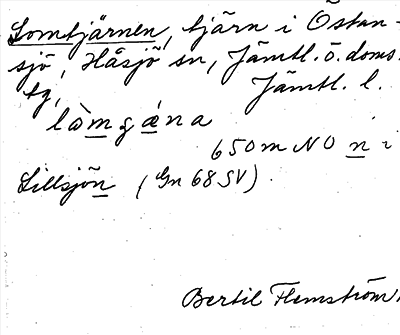 Lomtjärnen, tjärn i Östan-
sjö, Håsjö sn, Jämtl. ö. doms.
tg, Jämtl. l.
650 m NO n i
Lillsjön (Gn 68 SV).
Bertil Flemström.